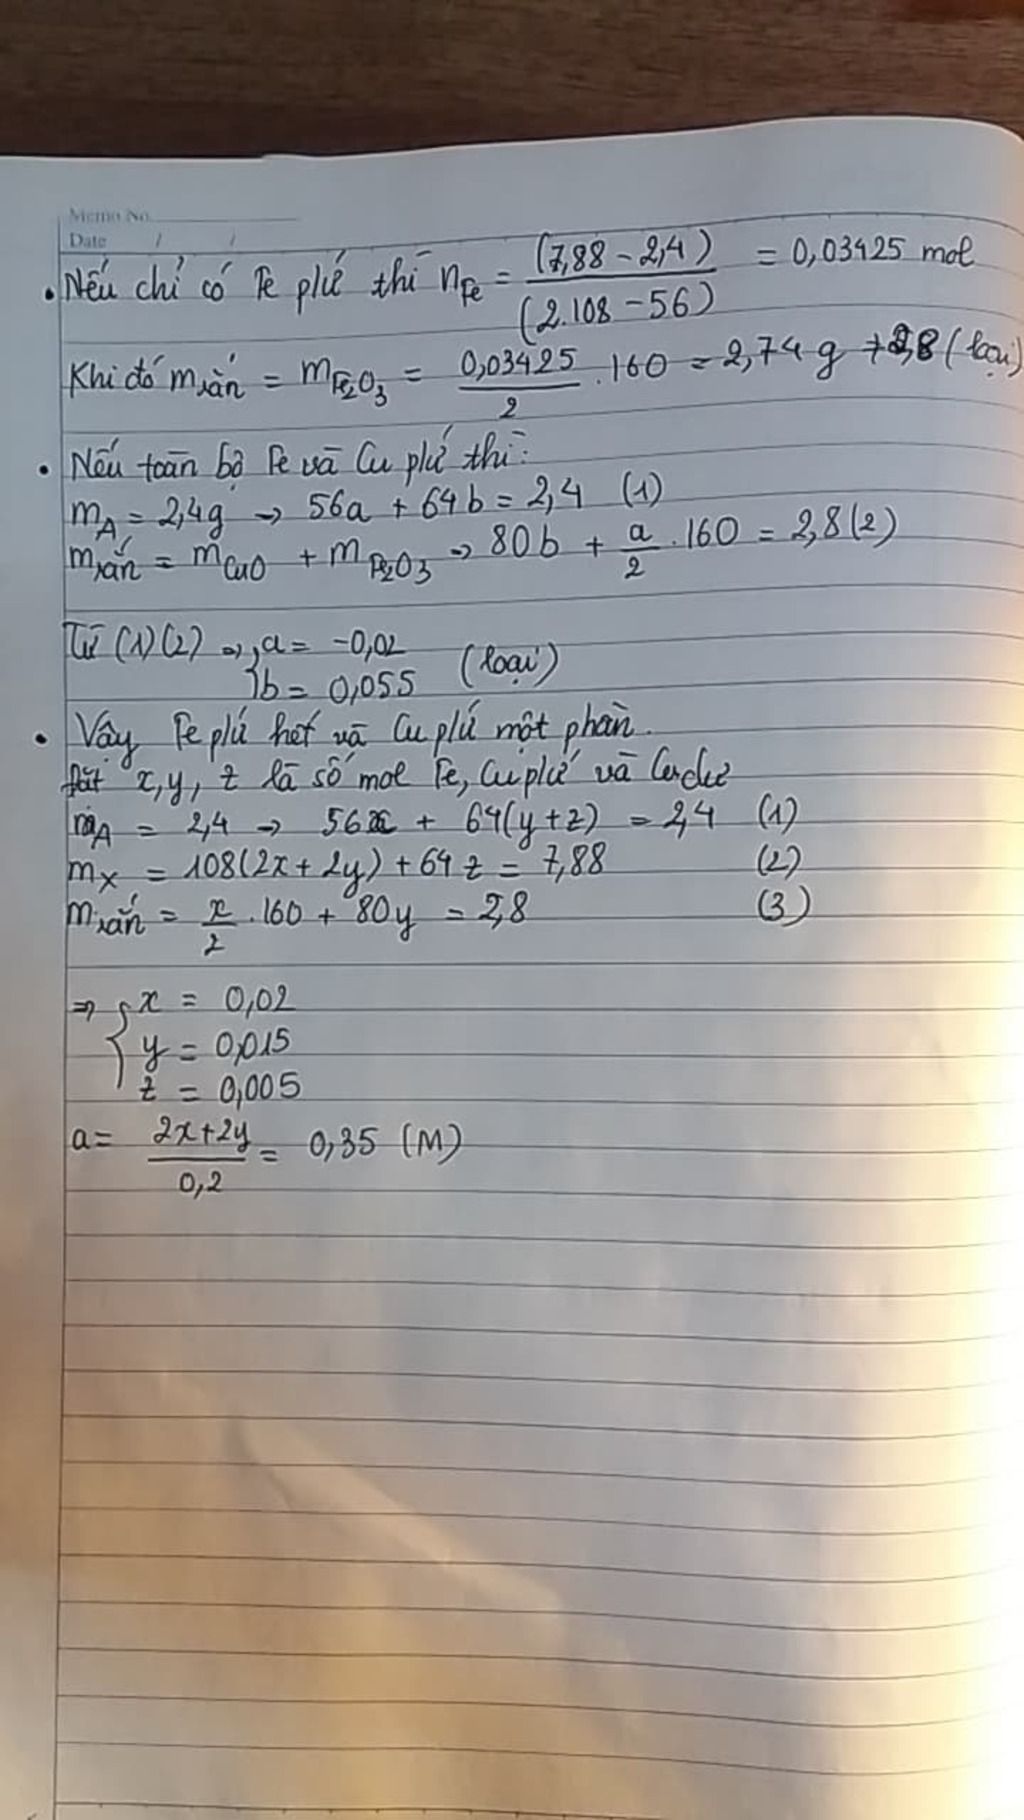 Memo No.
Date / /
• Nếu chỉ có Fe pứ thì nFe = (7,88 - 2,4) / (2.108 - 56) = 0,03425 mol
Khi đó mrắn = mFe2O3 = 0,03425 / 2 . 160 = 2,74 g ≠ 2,8 (loại)
• Nếu toàn bộ Fe và Cu pứ thì:
mA = 2,4g → 56a + 64b = 2,4 (1)
mrắn = mCuO + mFe2O3 → 80b + a/2 . 160 = 2,8 (2)
Từ (1)(2) ⇒ { a = -0,02
b = 0,055 (loại)
• Vậy Fe pứ hết và Cu pứ một phần.
Đặt x, y, z là số mol Fe, Cu pứ và Cu dư
mA = 2,4 → 56x + 64(y+z) = 2,4 (1)
mX = 108(2x + 2y) + 64z = 7,88 (2)
mrắn = x/2 . 160 + 80y = 2,8 (3)
⇒ { x = 0,02
y = 0,015
z = 0,005
a = 2x+2y / 0,2 = 0,35 (M)